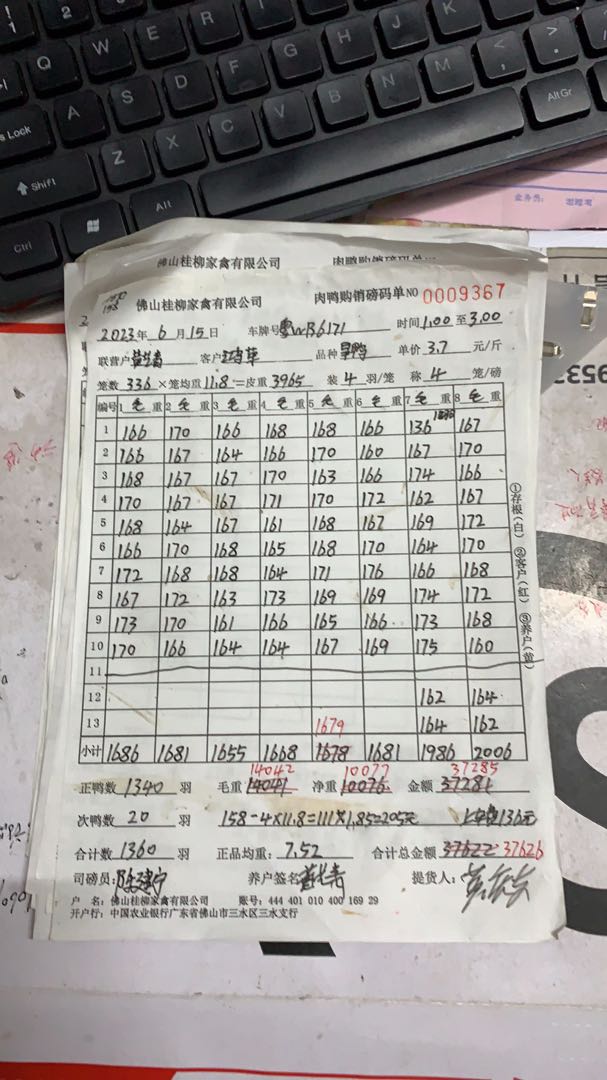 Q W E R T Y U H J K
A S D F G
s Lock Z X C V B N M < , > .
Shift
Alt Alt Gr
Ctrl
业务员:
佛山桂柳家禽有限公司 肉鸭购销磅码单
佛山桂柳家禽有限公司 肉鸭购销磅码单NO 0009367
2023年 6月 15日 车牌号粤WB6171 时间1.00至3.00
联营户 客户 品种 单价 3.7 元/斤
笼数 336 ×笼均重11.8=皮重 3965 装 4 羽/笼 称 4 笼/磅
编号 1 毛 重 2 毛 重 3 毛 重 4 毛 重 5 毛 重 6 毛 重 7 毛 重 8 毛 重
1 166 170 166 168 168 166 136 167
2 166 167 164 166 170 160 167 170
3 168 167 167 170 163 166 174 166
4 170 167 167 171 170 172 162 167
5 168 164 167 161 168 167 169 172
6 166 170 168 165 168 170 164 170
7 172 168 168 164 171 176 166 168
8 167 172 163 173 169 169 174 172
9 173 170 161 166 165 166 173 168
10 170 166 164 164 167 169 175 160
11
12 162 164
13 1679 164 162
小计 1686 1681 1655 1668 1678 1681 1986 2006
①存根(白) ②客户(红) ③养户(黄)
14042 10077 37285
正鸭数 1340 羽 毛重 14041 净重 10076 金额 37281
次鸭数 20 羽 158-4×11.8=111×1.85=205元 136元
合计数 1360 羽 正品均重: 7.52 合计总金额 37622 37626
司磅员: 养户签名 提货人:
户 名: 佛山桂柳家禽有限公司 账号: 444 401 010 400 169 29
开户行: 中国农业银行广东省佛山市三水区三水支行
953